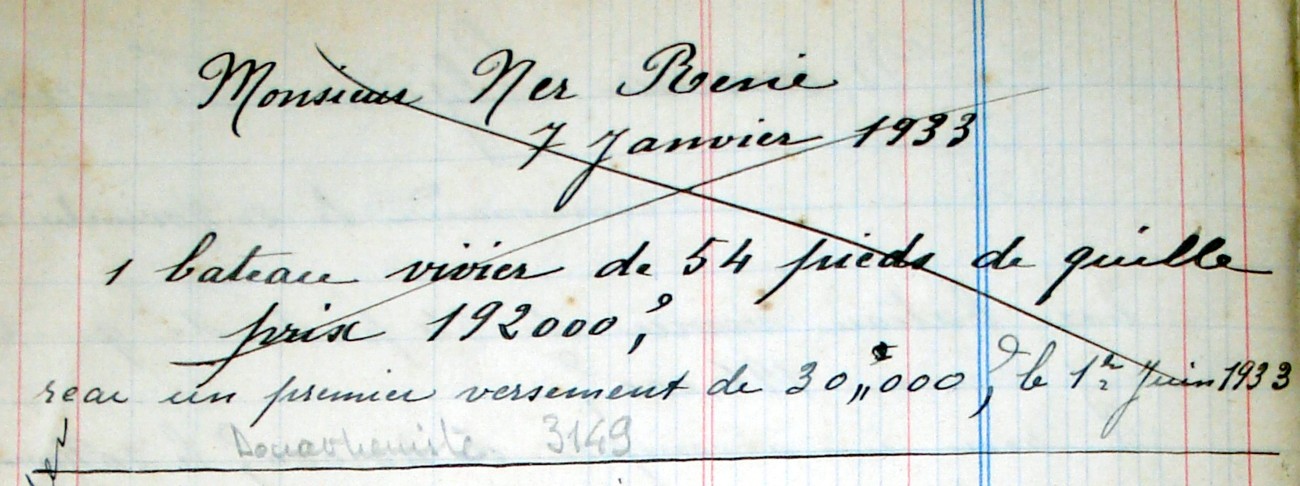 Monsieur Ner René
7 Janvier 1933
1 bateau vivier de 54 pieds de quille
prix 192000,
recu un premier versement de 30,,000, le 1er Juin 1933
3149